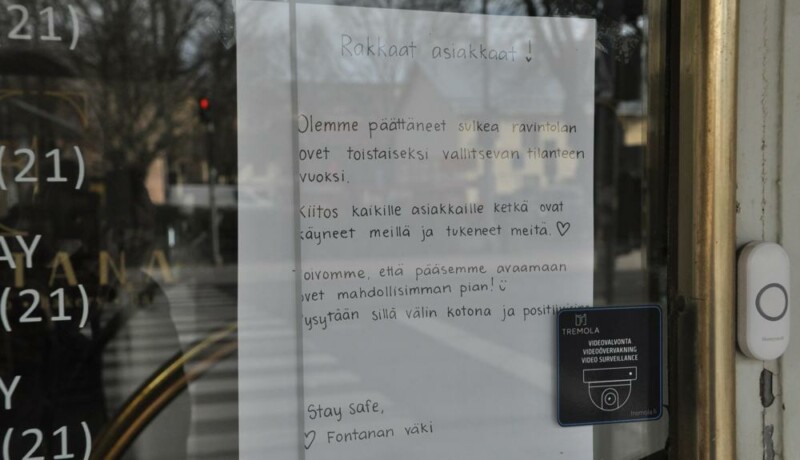 21)
(21)
AY
TANA
(21)
Y
(21)
Rakkaat asiakkaat!
Olemme päättäneet sulkea ravintolan
ovet toistaiseksi vallitsevan tilanteen
vuoksi.
Kiitos kaikille asiakkaille ketkä ovat
käyneet meillä ja tukeneet meitä. ♡
Toivomme, että pääsemme avaamaan
ovet mahdollisimman pian!
Pysytään sillä välin kotona ja
Stay safe,
♡ Fontanan väki
TREMOLA
VIDEOVALVONTA
VIDEOÖVERVAKNING
VIDEO SURVEILLANCE
tremola.fi